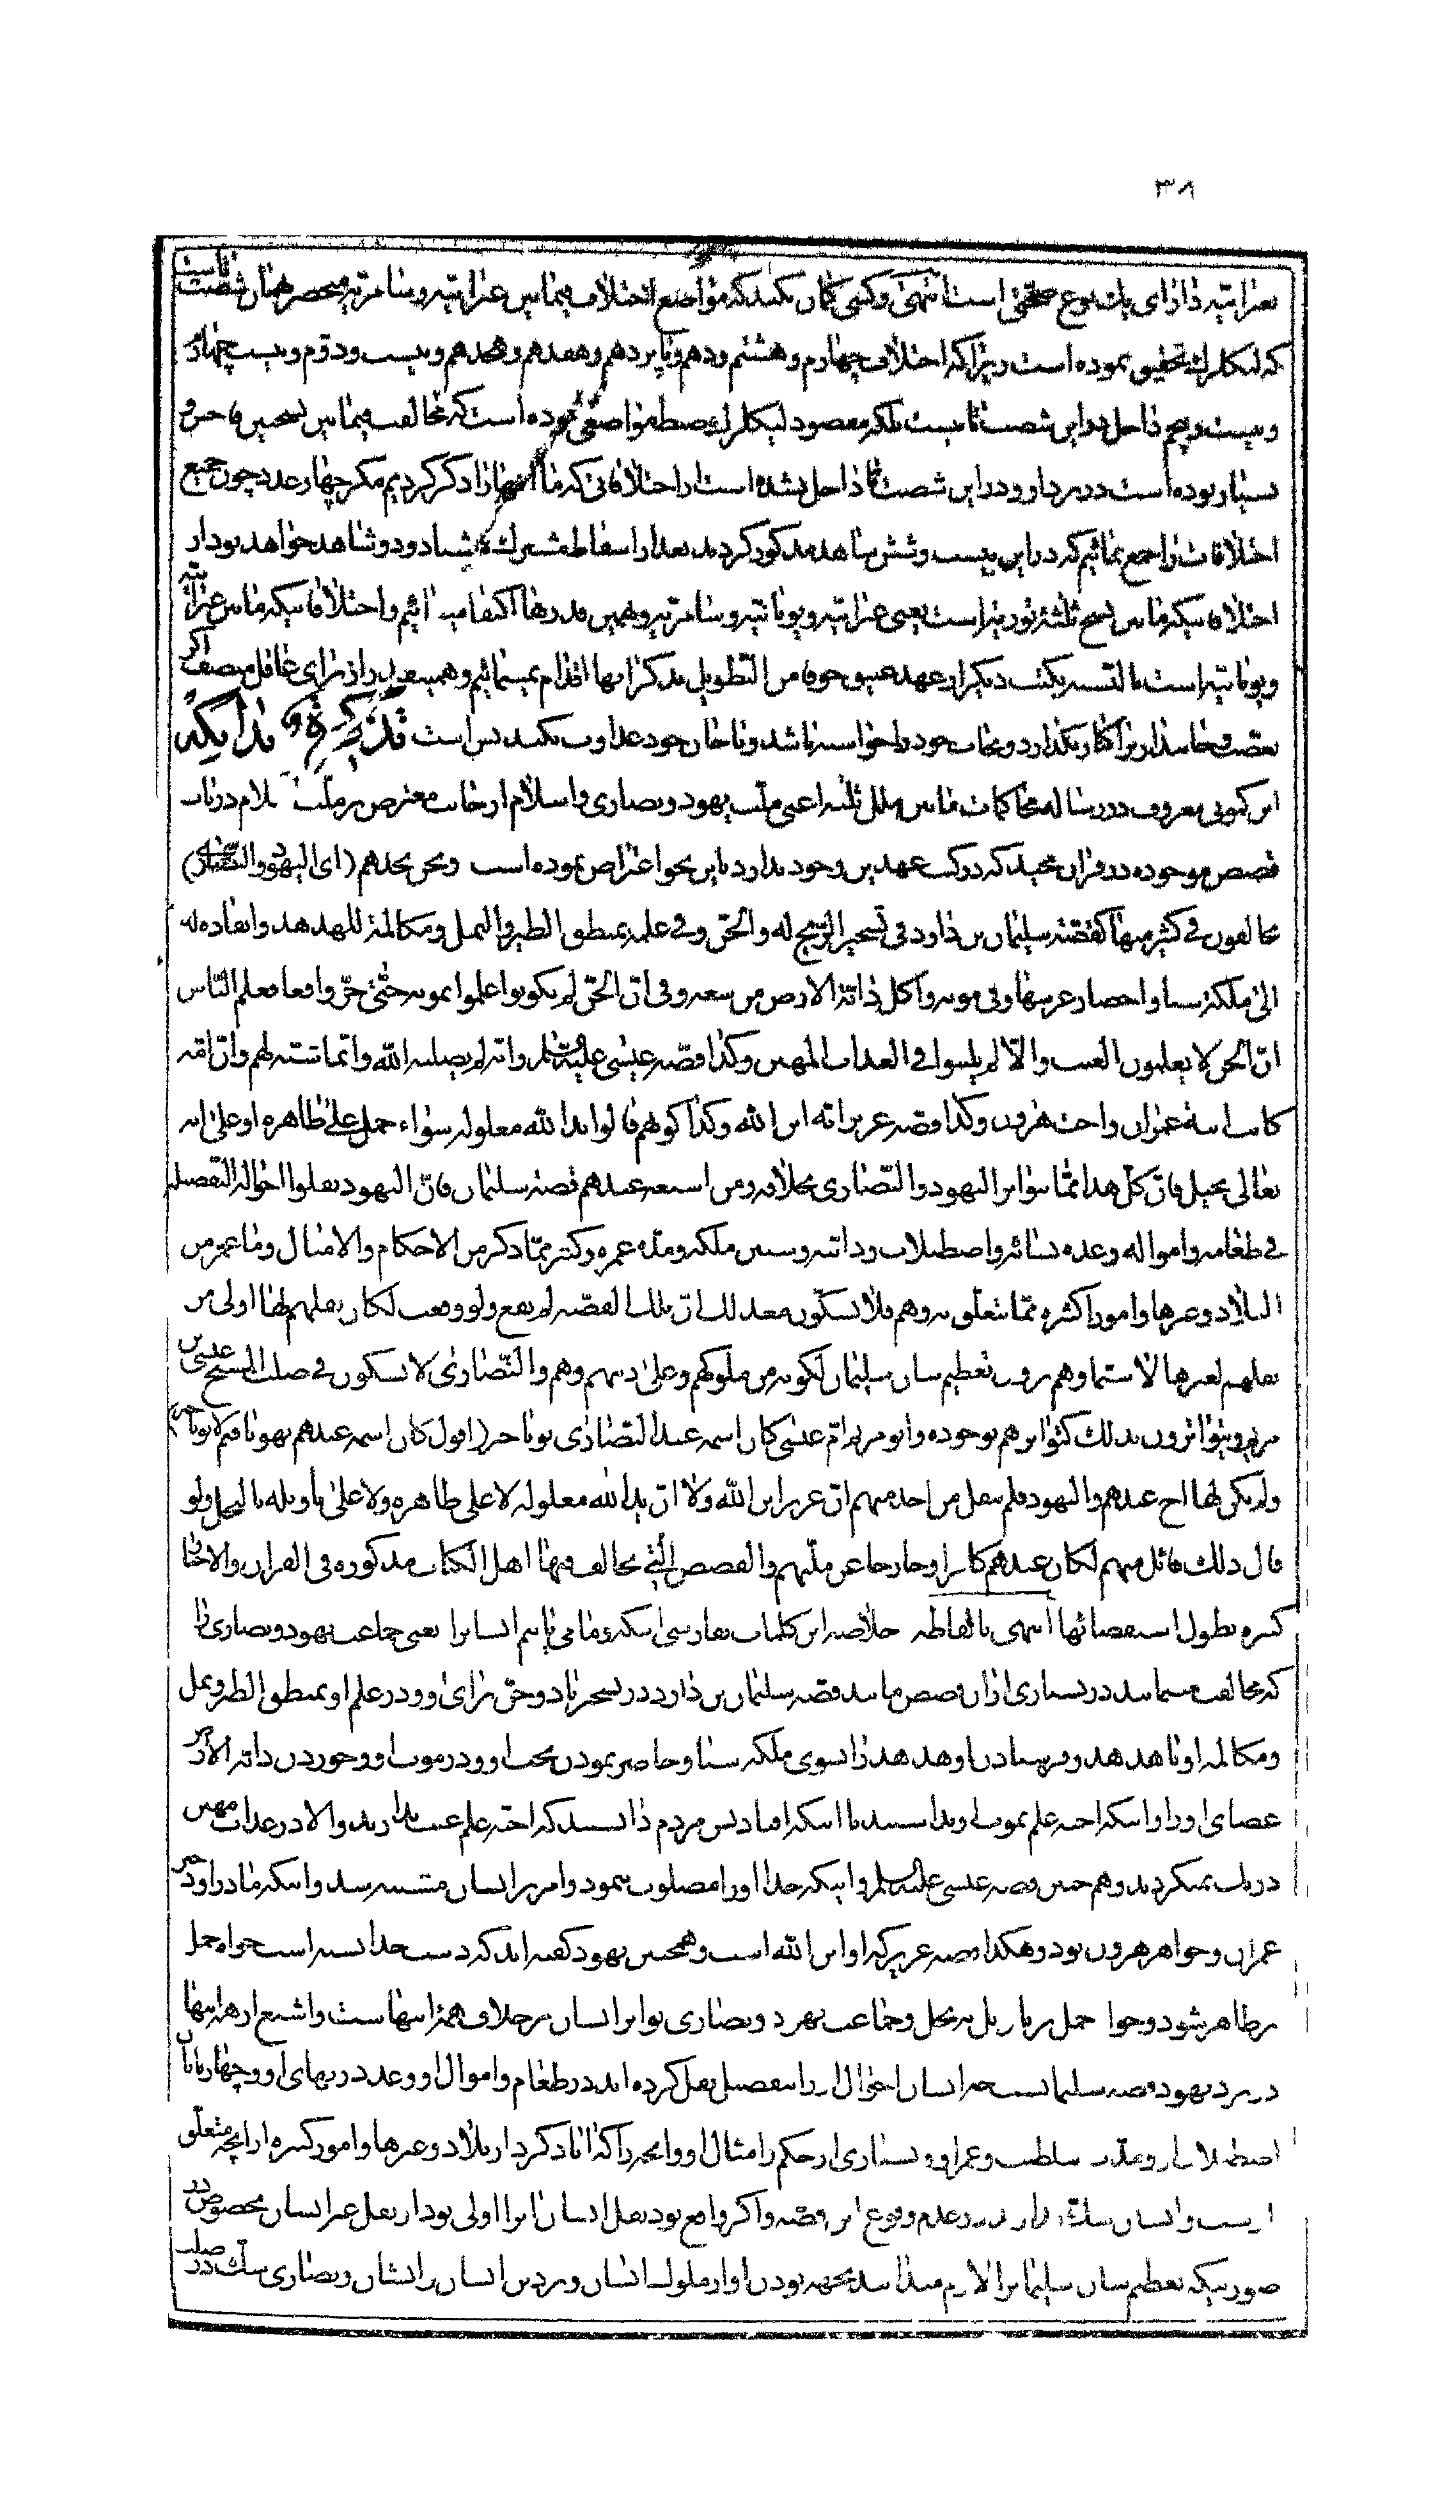 ۳۸
بعبرانیه دارای یک نوع صحتی است انتهی و کسی گمان نکند که مواضع اختلاف فیمابین عبرانیه و سامریه منحصر بهمان شصت تا است
که لیکلرک تحقیق نموده است زیرا که اختلاف چهارم و هشتم و دهم و پانزدهم و هفدهم و هجدهم و بیست و دوم و بیست چهارم
و بیست و پنجم داخل در این شصت تا نیست بلکه مقصود لیکلرک ضبط مواضعی بوده است که مخالفت فیمابین نسختین فاحش و
بسیار بوده است در نزد او و در این شصت تا داخل نشده است از اختلافاتی که ما آنها را ذکر کردیم مگر چهار عدد چون جمیع
اختلافات را جمع نمائیم که در این بیست و شش شاهد مذکور گردید بعد از اسقاط مشترک هشتاد و دو شاهد خواهد بود از
اختلافاتیکه مابین نسخ ثلثه توریة است یعنی عبرانیه و یونانیه و سامریه و بهمین قدرها اکتفا مینمائیم و اختلافاتیکه مابین عبرانیه
و یونانیه است بالنسبه بکتب دیگر از عهد عتیق خوفا من التطویل بذکر آنها اقدام نمینمائیم و همینقدر از برای عاقل منصف اگر
تعصب و حسد را بر کنار بگذارد و نجات خود را خواسته باشد و با جان خود عداوت نکند بس است تذکرة و بدانیکه
ابن کمونی معروف در رساله محاکمات مابین ملل ثلثه اعنی ملت یهود و نصاری و اسلام از جانب معترض بر ملت اسلام در باب
قصص موجوده در قرآن مجید که در کتب عهدین وجود ندارد باین نحو اعتراض نموده است و نحن نجدهم (ای الیهود و النصاری)
مخالفون فی کثیر منها کقصة سلیمان بن داود فی تسخیر الریح له و الجن و فی علمه بمنطق الطیر و النمل و مکالمة للهدهد و انفاده له
الی ملکة سبا و احضار عرشها و فی موته و اکل دابة الارض من سعه و فی ان الجن لم یکونوا علموا بموته حتی خر واقعا فعلم الناس
ان الجن لا یعلمون الغیب و الا لم یلبثوا فی العذاب المهین و کذا قصة عیسی علیه السلم و انه لم یصلبه الله و انما شبه لهم و ان امه
کانت ابنة عمران و اخت هرون و کذا قصه عزیر انه ابن الله و کذا کونهم قالوا ید الله مغلوله سواء حمل علی ظاهره او علی انه
تعالی بخیل فان کل هذا مما تواتر الیهود و النصاری بخلافه و من اشنعه عندهم قصة سلیمان فان الیهود نقلوا احواله التفصیلیه
فی طعامه و امواله و عدة نسائه و اصطبلات و دابته و سنین ملکه و مدة عمره و کثیر مما ذکر من الاحکام و الامثال و ما عمر من
البلاد و غیرها و امورا کثیره مما یتعلق به و هم فلا یشکون معذلک ان تلک القصة لم یقع و لو وقعت لکان نقلهم لها اولی من
نقلهم لغیرها لا سیما و هم یرون تعظیم شان سلیمان لکونه من ملوکهم و علی دینهم و هم و النصاری لا یشکون فی صلب المسیح عیسی بن
مریم و یتواترون بذلک کتواترهم بوجوده و ابو مریم ام عیسی کان اسمه عند النصاری یوناخیر (اقول کان اسمه عندهم یهویاقیم لا یوناخیر)
و لم یکن لها اخ عندهم و الیهود فلم ینقل من احد منهم ان عزیر ابن الله و لا ان ید الله مغلوله لا علی ظاهره و لا علی تأویله بالبخل و لو
قال ذلک قائل منهم لکان عندهم کافرا و خارجا عن ملتهم و القصص التی یخالف فیها اهل الکتاب مذکوره فی القرآن و الاخبار
کثیره یطول استقصائها انتهی بالفاظه خلاصه این کلمات بفارسی اینکه و ما می یابیم ایشانرا یعنی جماعت یهود و نصاری را
که مخالفت مینمایند در بسیاری از آن قصص مانند قصه سلیمان بن داود در تسخیر باد و جن برای او و در علم او بمنطق الطیر و نمل
و مکالمه او با هدهد و فرستادن او هدهد را بسوی ملکه سبا و حاضر نمودن تخت او و در موت او و خوردن دابة الارض
عصای او را و اینکه اجنه علم بموت او نداشتند تا اینکه افتاد پس مردم دانستند که اجنه علم غیب ندارند و الا در عذاب مهین
درنگ نمیکردند و هم چنین قصه عیسی علیه السلم و اینکه خدا او را مصلوب ننمود و امر بر ایشان مشتبه شد و اینکه مادر او دختر
عمران و خواهر هرون بود و هکذا قصه عزیر که او ابن الله است و همچنین یهود گفته اند که دست خدا بسته است خواه حمل
بر ظاهر شود و خواه حمل بر تأویل به بخل و جماعت یهود و نصاری تواتر ایشان بر خلاف همه اینها است و اشنع از همه اینها
در نزد یهود قصه سلیمانست چه ایشان احوال او را بتفصیل نقل کرده اند در طعام و اموال او و عدد زنهای او و چهارپایان
اصطبلات او و مدت سلطنت و عمر او و بسیاری از حکم و امثال او و آنچه را که آباد کرد از بلاد و غیرها و امور کثیره از آنچه متعلق
باوست و ایشان شک ندارند در عدم وقوع این قصه و اگر واقع بود نقل ایشان آنرا اولی بود از نقل غیر ایشان بخصوص در
صورتیکه تعظیم شان سلیمانرا لازم میدانند بجهة بودن او از ملوک ایشان و بر دین ایشان و ایشان و نصاری شک در صلب